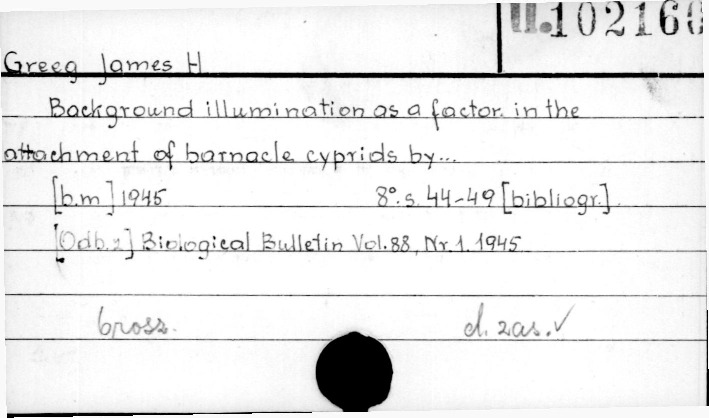 II.102166
Greeg James H
Background illumination as a factor in the
attachment of barnacle cyprids by...
[b.m] 1945 8°. s. 44-49 [bibliogr.]
[Odb. z] Biological Bulletin Vol. 88, Nr. 1. 1945
brosz. d. zas. ✓